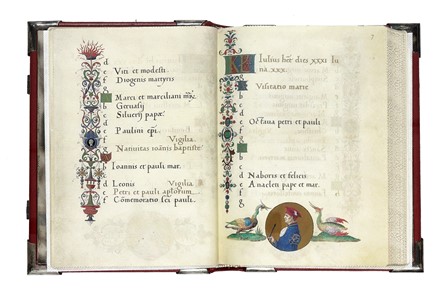 d
e Viti et modesti.
f Diogenis martyris
g
Marci et marceliani mr̃.
b Geruasij
c Siluerij papae
d
e Paulini ep̃i.
f Vigilia
g Natiuitas ioãnis baptiste
b Ioannis et pauli mar.
c
d Leonis Vigilia
e Petri et pauli aplorum
f Cõmemoratio sci pauli.
Iulius hẽt dies xxxi Lu
na.xxx.
g
b Visitatio marie
c
d
e
f Octaua petri et pauli
g
b
c
d
e Naboris et felicis
f Anacleti pape et mar.
g